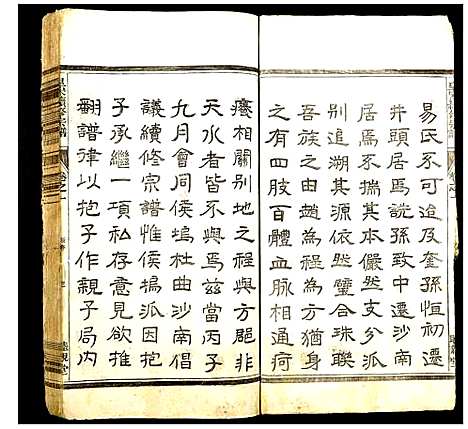 易氏不可追及奎孫恒初遷
井頭居焉説孫致中遷沙南
居焉不揣其本儼然璧合珠聯
別追溯其源依然
吾族之由趙為程為方猶身
之有四肢百體血脈相通疴
癢相關別地之程與方郶非
天水者皆不與焉茲當丙子
九月會同侯塢杜曲沙南
議續修宗譜惟侯塢派因
子承繼一項私存意見欲推
翻譜律以抱子作親子局內
卷之一